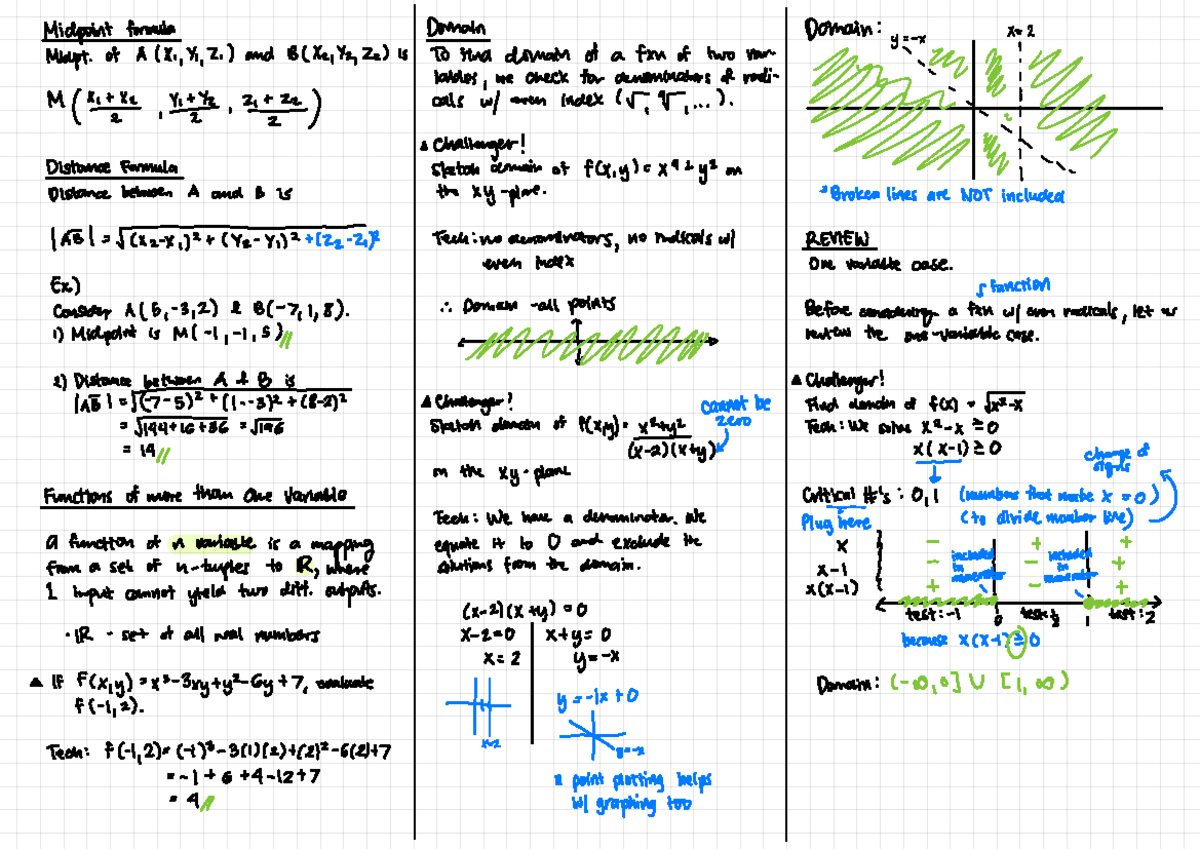 Midpoint formula
Midpt. of A(X₁, Y₁, Z₁) and B(X₂, Y₂, Z₂) is
M (X₁ + X₂ / 2 , Y₁ + Y₂ / 2 , Z₁ + Z₂ / 2)
Distance Formula
Distance between A and B is
|AB| = √(X₂-X₁)² + (Y₂-Y₁)² + (Z₂-Z₁)²
Ex)
Consider A(5, -3, 2) & B(-7, 1, 8).
1) Midpoint is M(-1, -1, 5)
2) Distance between A & B is
|AB| = √(-7-5)² + (1--3)² + (8-2)²
= √144+16+36 = √196
= 14
Functions of more than One Variable
A function of n variable is a mapping
from a set of n-tuples to ℝ, where
1 input cannot yield two diff. outputs.
· ℝ - set of all real numbers
▲ If F(x,y) = x³-3xy+y²-6y+7, evaluate
f(-1, 2).
Tech: f(-1,2) = (-1)³ - 3(1)(2) + (2)² - 6(2) + 7
= -1 + 6 + 4 - 12 + 7
= 4
Domain
To find domain of a fxn of two var-
iables, we check for denominators & radi-
cals w/ even index (√, ∜, ...).
▲ Challenger!
Sketch domain of f(x,y) = x⁴ + y² on
the xy-plane.
Tech: no denominators, no radicals w/
even index
∴ Domain - all points
▲ Challenger!
cannot be
zero
Sketch domain of f(x,y) = x²+y² / (x-2)(x+y)
on the xy-plane
Tech: We have a denominator. We
equate it to 0 and exclude the
solutions from the domain.
(x-2)(x+y) = 0
x-2=0 x+y=0
x=2 y=-x
y = -1x + 0
x=2
y=-x
point plotting helps
w/ graphing too
Domain:
y=-x
x=2
*Broken lines are NOT included
REVIEW
One variable case.
function
Before considering a fxn w/ even radicals, let us
review the one-variable case.
▲ Challenger!
Find domain of f(x) = √x²-x
Tech: We solve x²-x ≥ 0
x(x-1) ≥ 0
change of
signs
Critical #'s : 0, 1 (numbers that make x = 0)
Plug here (to divide number line)
x - + +
x-1 - - +
x(x-1) + - +
included
in
included
in
test: -1 0 test: ½ 1 test: 2
because x(x-1) ≥ 0
Domain: (-∞, 0] ∪ [1, ∞)